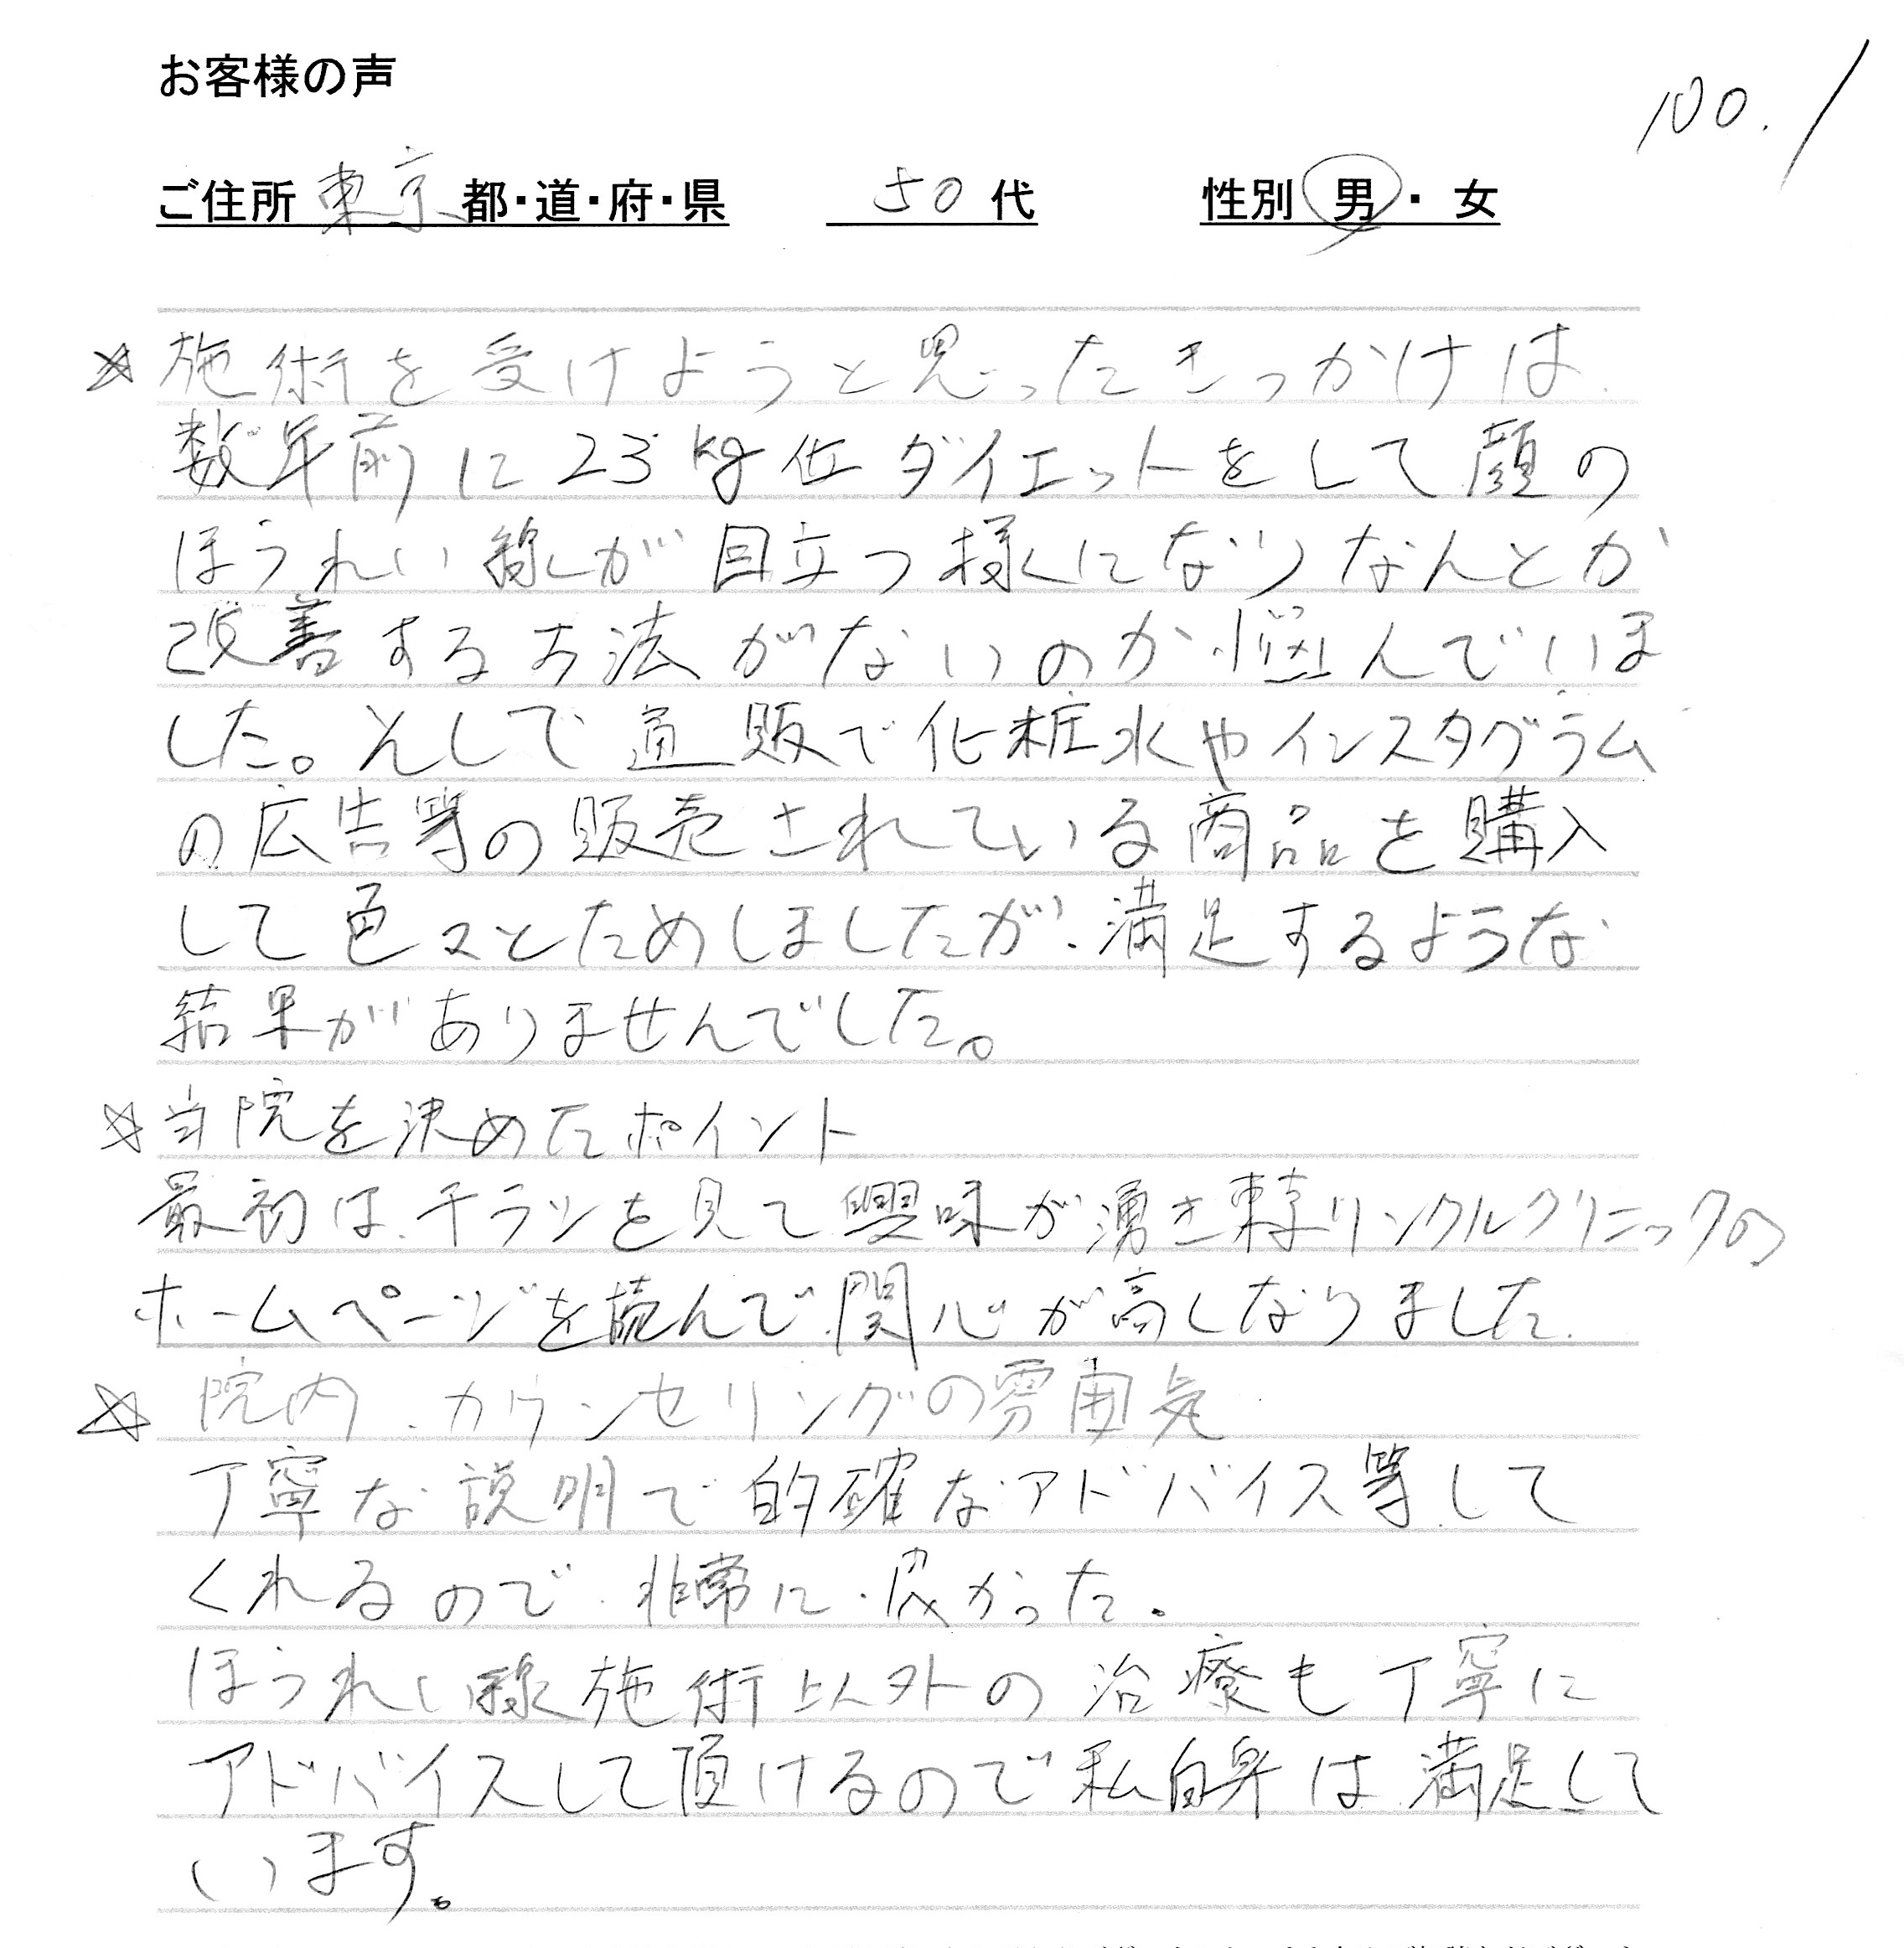 お客様の声
100.
ご住所 東京 都・道・府・県 50代 性別 男・女
☆施術を受けようと思ったきっかけは、
数年前に23kg位ダイエットをして顔の
ほうれい線が目立つ様になりなんとか
改善する方法がないのか、悩んでいま
した。そして通販で化粧水やインスタグラム
の広告等の販売されている商品を購入
して色々とためしましたが、満足するような
結果がありませんでした。
☆当院を決めたポイント
最初は、チラシを見て興味が湧き東京リンクルクリニックの
ホームページを読んで関心が高くなりました.
☆院内、カウンセリングの雰囲気
丁寧な説明で的確なアドバイス等して
くれるので、非常に、良かった。
ほうれい線施術以外の治療も丁寧に
アドバイスして頂けるので私自身は満足して
います。